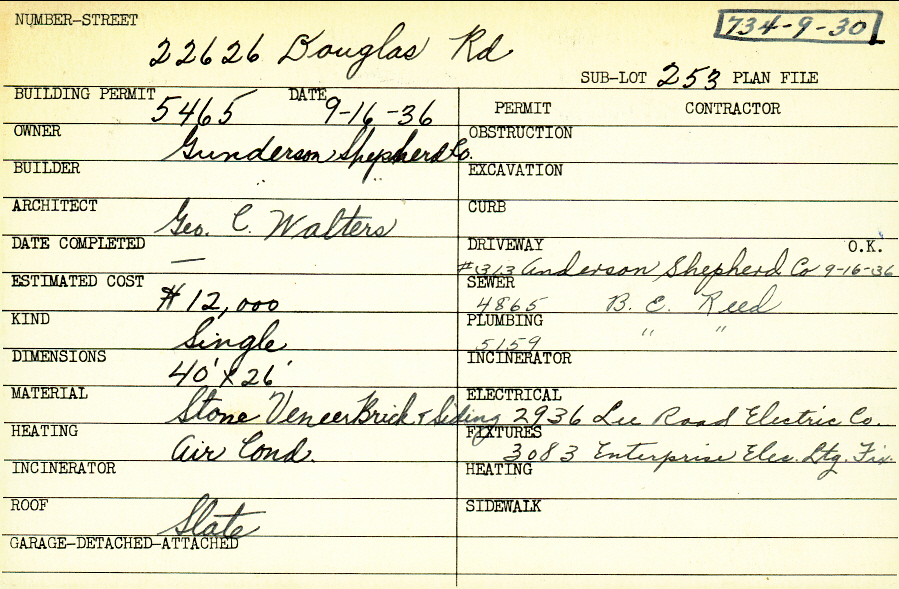 NUMBER-STREET
734-9-30
22626 Douglas Rd
SUB-LOT 253 PLAN FILE
BUILDING PERMIT 5465 DATE 9-16-36
PERMIT CONTRACTOR
OWNER Gunderson Shepherd Co.
OBSTRUCTION
BUILDER " "
EXCAVATION
ARCHITECT Geo. C. Walters
CURB
DATE COMPLETED —
DRIVEWAY O.K.
#313 Anderson Shepherd Co 9-16-36
ESTIMATED COST $12,000
SEWER
4865 B. E. Reed
KIND Single
PLUMBING " "
5159
DIMENSIONS 40' x 26'
INCINERATOR
MATERIAL Stone Veneer Brick & Siding
ELECTRICAL
2936 Lee Road Electric Co.
HEATING Air Cond.
FIXTURES
3083 Enterprise Elec. Ltg. Fix.
INCINERATOR
HEATING
ROOF Slate
SIDEWALK
GARAGE-DETACHED-ATTACHED